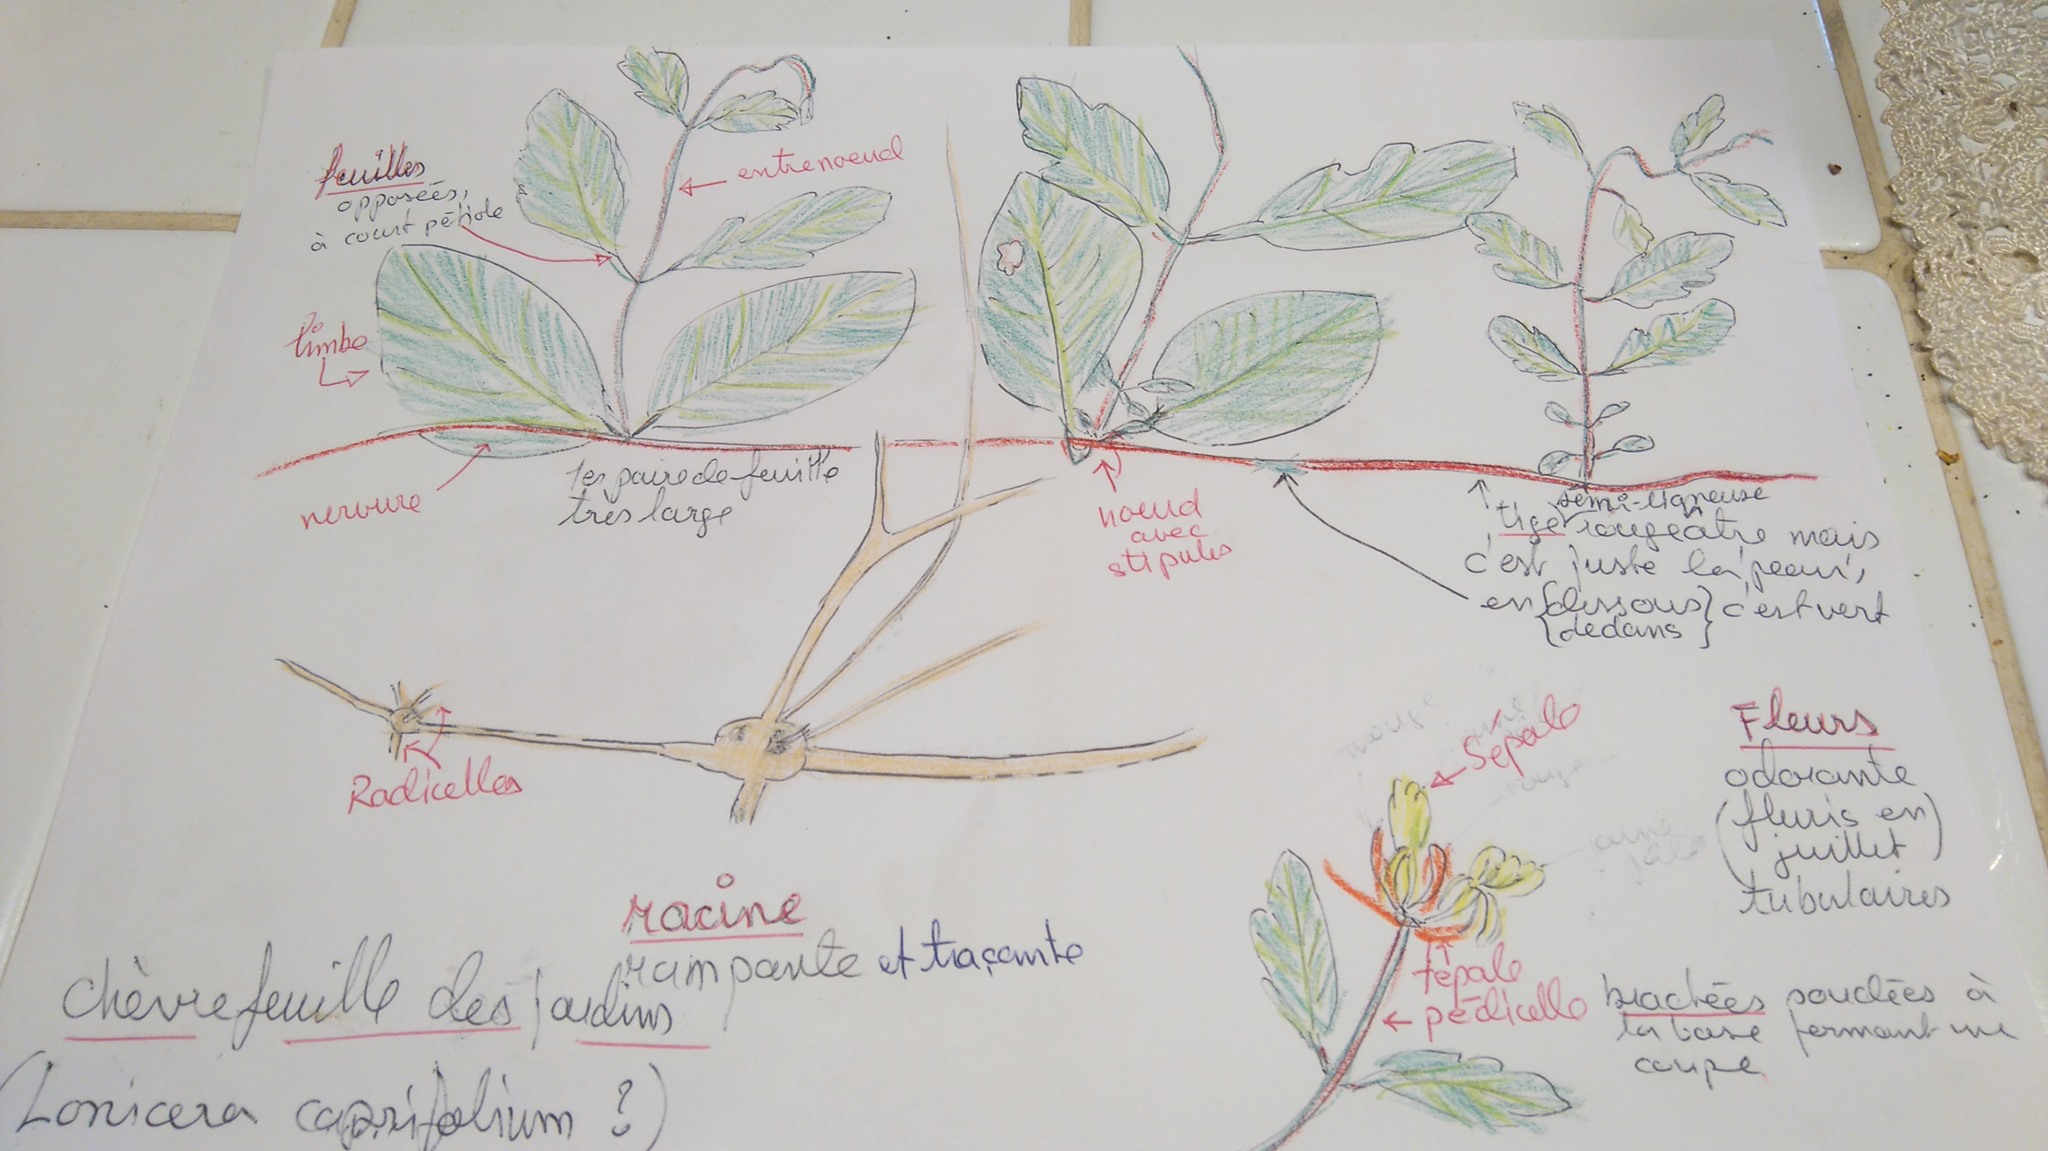 feuilles
opposées,
à court pétiole
entrenoeud
limbe
nervure
1er paire de feuille
très large
noeud
avec
stipules
semi-ligneuse
tige rougeâtre mais
c'est juste la 'peau',
en {dessous} c'est vert
{dedans}
Radicelles
racine
rampante et traçante
chèvrefeuille des jardins
(Lonicera caprifolium ?)
Sépale
tépale
pédicelle
Fleurs
odorante
(fluris en)
juillet
tubulaires
bractées soudées à
la base formant une
coupe